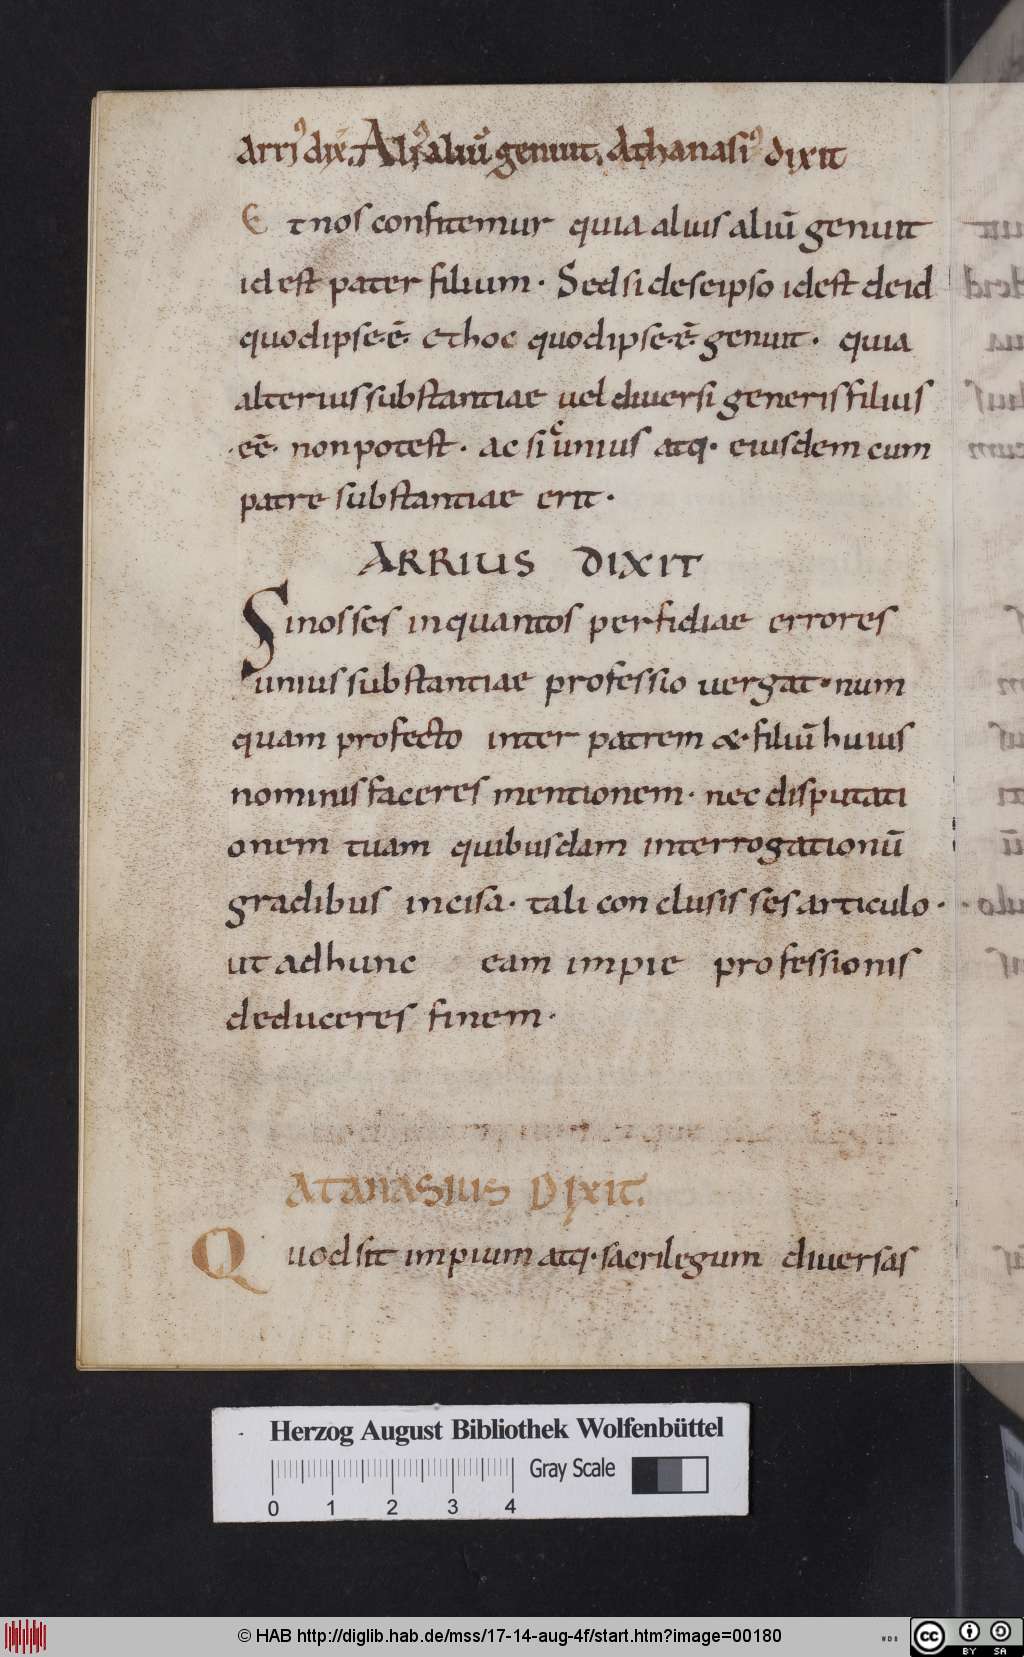 Arriꝰ dix̅. Aliꝰ aliū genuit. Athanasiꝰ dixit
Et nos confitemur quia alius aliū genuit
id est pater filium · Sed si de se ipso id est de id
quod ipse·ē· et hoc quod ipse·ē· genuit · quia
alterius substantiae uel diuersi generis filius
·eē· non potest · ac si unius atq· eiusdem cum
patre substantiae erit ·
ARRIUS DIXIT
Si nosses in quantos perfidiae errores
unius substantiae professio uergat · num
quam profecto inter patrem & filiū huius
nominis faceres mentionem · nec disputati
onem tuam quibusdam interrogationū
gradibus incisa · tali conclusisses articulo ·
ut ad hunc eam impie professionis
deduceres finem ·
ATANASIUS DIXIT.
Quod sit impium atq· sacrilegum diuersas
Herzog August Bibliothek Wolfenbüttel
Gray Scale
0 1 2 3 4
© HAB http://diglib.hab.de/mss/17-14-aug-4f/start.htm?image=00180
WDB
cc BY SA